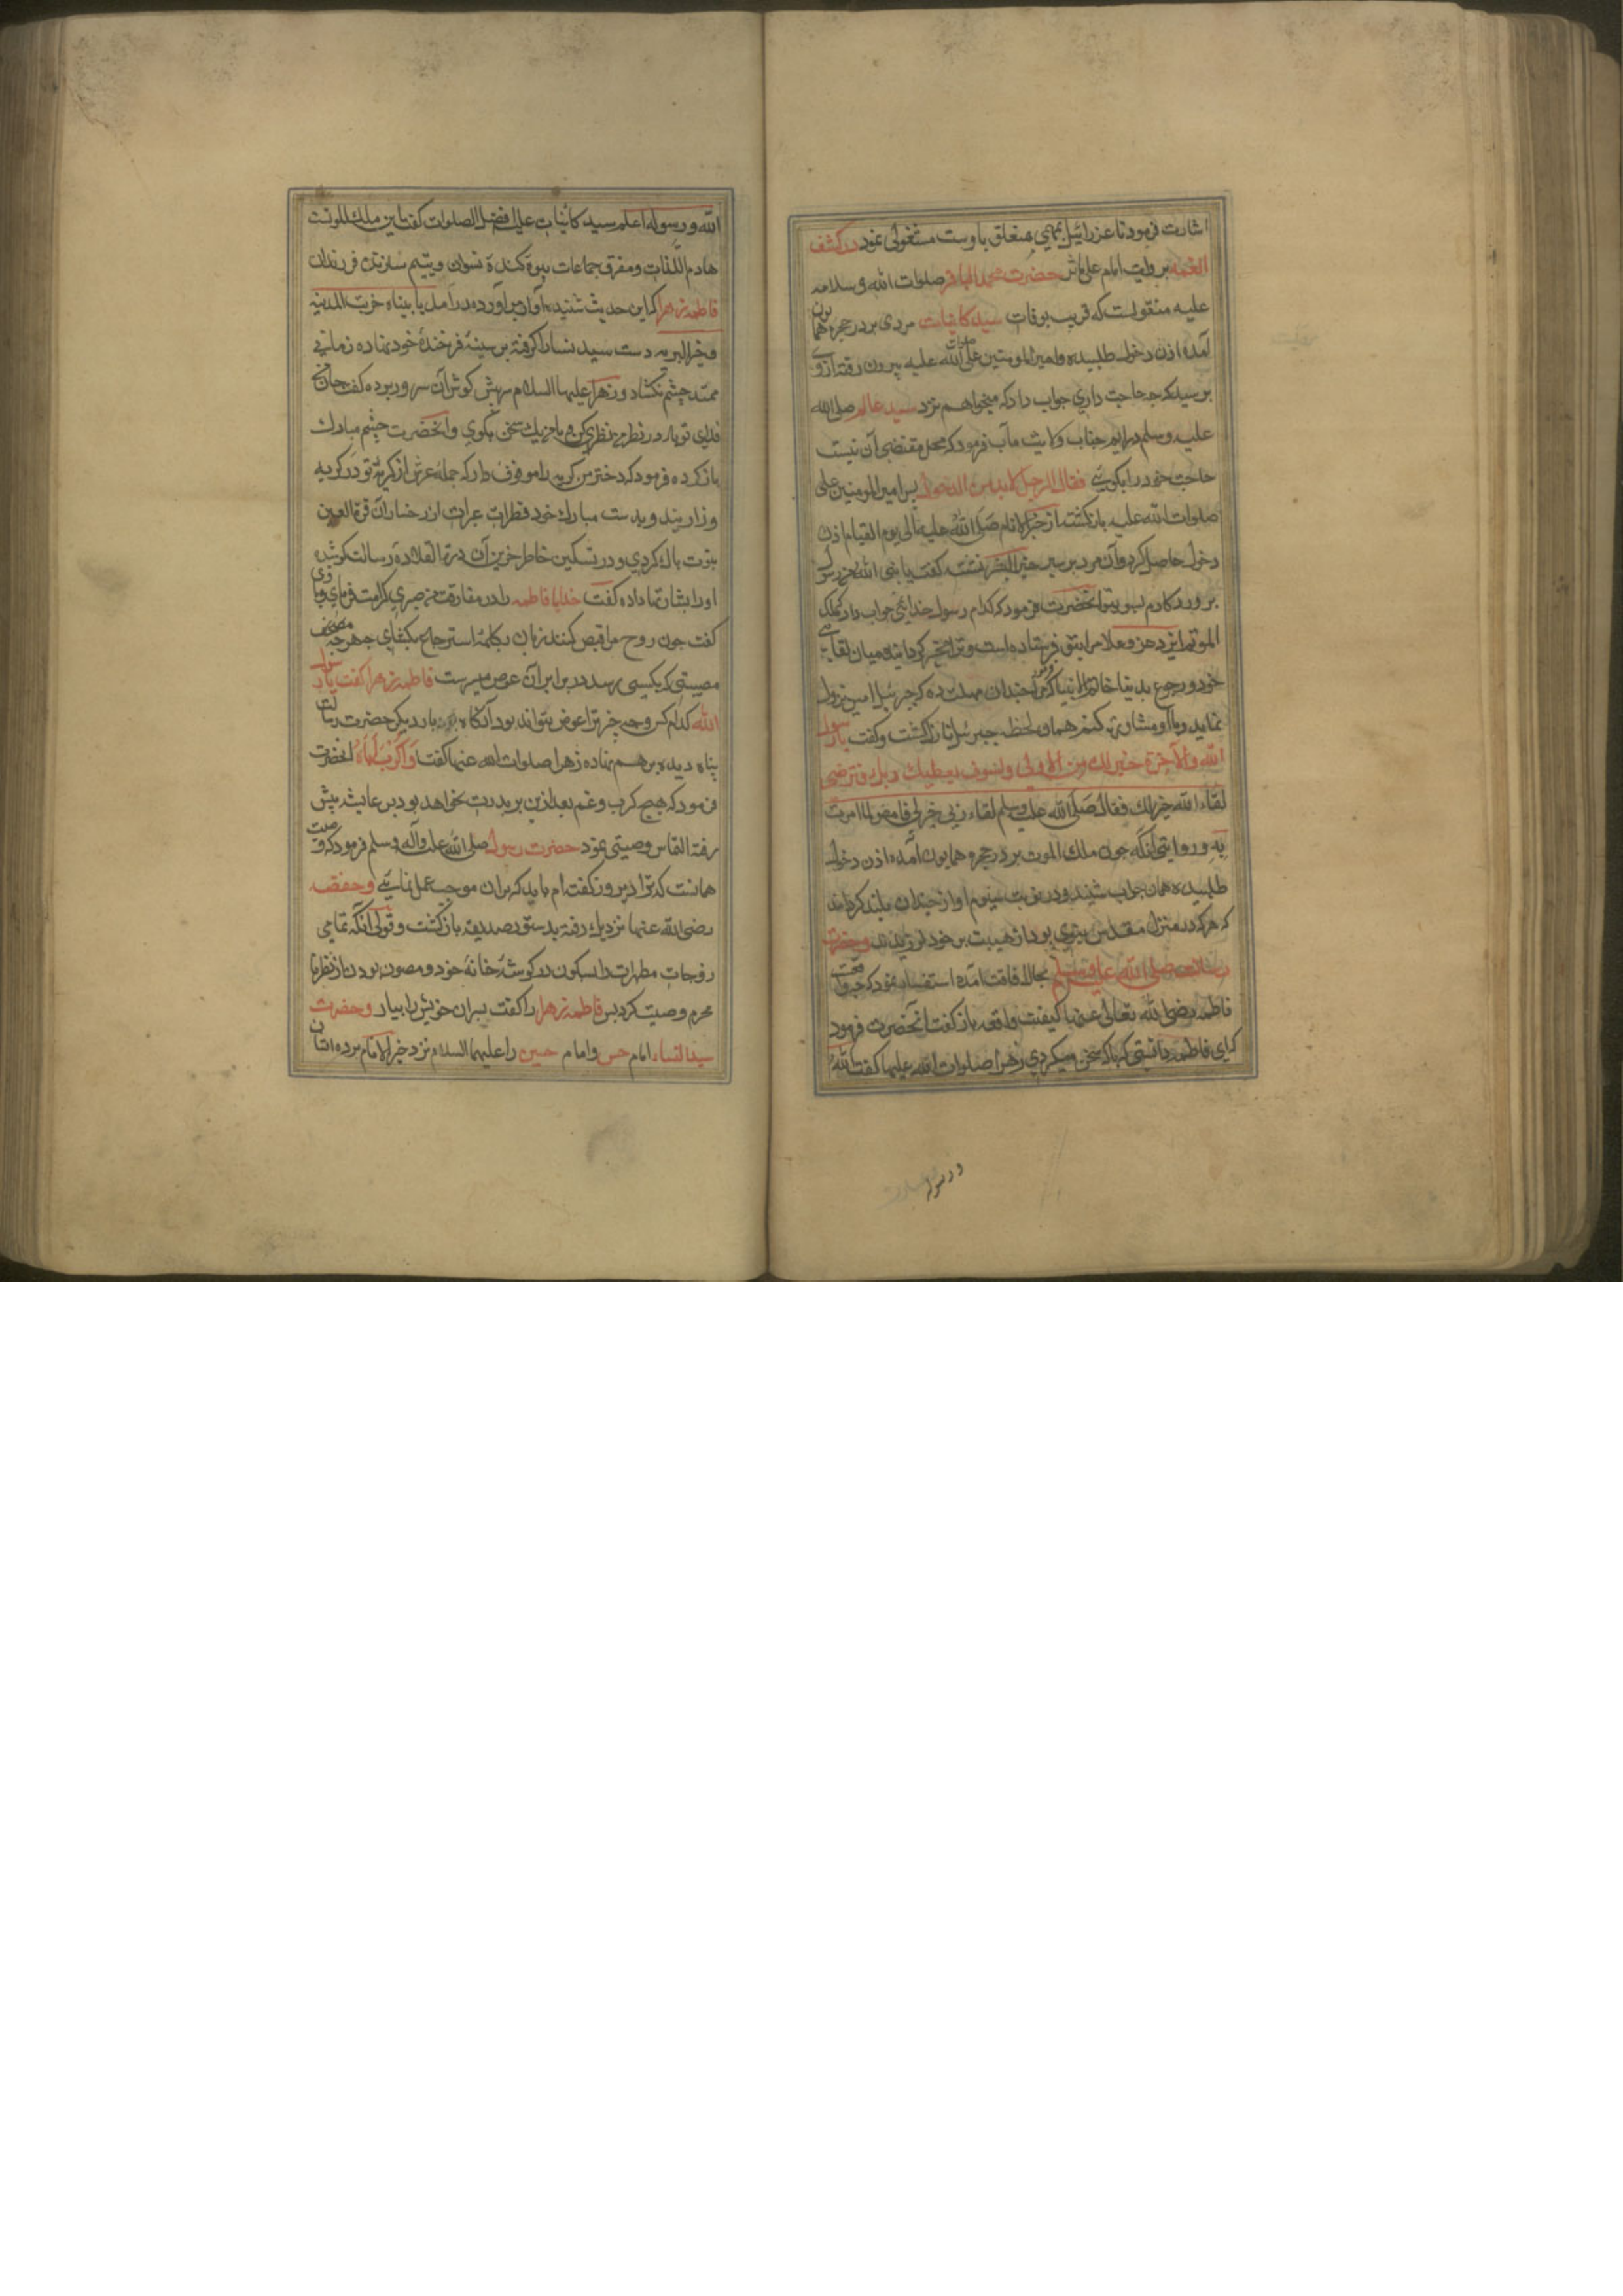 اشارت فرمود تا عزرائیل بمهمی که متعلق باوست مشغولی نمود در کشف
الغمه بروایت امام علی حضرت محمد الباقر صلوات الله و سلامه
علیه منقولست که قریب بوفات سید کاینات مردی بر در حجره همایون
آمده اذن دخول طلبیده و امیرالمومنین علی صلوات الله علیه بیرون رفته از وی
پرسید که چه حاجت داری جواب داد که میخواهم نزد سید عالم صلی الله
علیه وسلم درایم جناب ولایت مآب فرمود که محل مقتضی آن نیست
حاجت خود را بگوی فقال الرجل لابد من الدخول پس امیرالمومنین علی
صلوات الله علیه بازگشته از خیر الانام صلی الله علیه الی یوم القیام اذن
دخول حاصل کرد و آن مرد بر سر خیر البشر نشسته گفت یا نبی الله من رسول
پروردگارم بسوی تو آنحضرت فرمود که کدام رسول خدائی جواب داد که ملک
الموتم ایزد عز و علا مرا بتو فرستاده است و ترا مخیر گردانیده میان لقای
خود و رجوع بدنیا خاتم الانبیا گفت چندان مهلت ده که جبرئیل امین نزول
نماید و با او مشاورت کنم هماو لحظه جبرئیل نازل گشت و گفت یا رسول
الله وللآخرة خیر لك من الاولی ولسوف یعطیك ربك فترضی
لقاء الله خیر لك فقال صلی الله علیه وسلم لقاء ربی خیر لی فامض لما امرت
به و روایتی آنکه چون ملک الموت بر در حجره همایون آمده اذن دخول
طلبیده همان جواب شنید و در نوبت سیوم آواز چندان بلند گردانید
که هرکه در منزل مقدس نبوی بود از هیبت بر خود لرزید و حضرت
رسالت صلی الله علیه وسلم بحال افاقت آمده استفسار نمود که چه واقعست
فاطمه رضی الله تعالی عنها کیفیت واقعه باز گفت آنحضرت فرمود
که ای فاطمه دانستی که با که سخن میکردی زهرا صلوات الله علیها گفت الله
ورسوله
الله ورسوله اعلم سید کاینات علیه افضل الصلوات گفت این ملک الموتست
هادم اللذات و مفرق جماعات بیوه کننده نسوان و یتیم سازنده فرزندان
فاطمه زهرا که این حدیث شنید آواز برآورده در آمد یا مدیناه خربت المدینه
و خیر البریه دست سید نسا را گرفته بر سینه فرخنده خود نهاده زمانی
ممتد چشم نگشاد و زهرا علیها السلام سر پیش گوش آن سرور برده گفت جان من
فدای تو باد در نظری کن و با من یک سخن بگوی و آنحضرت چشم مبارک
باز کرده فرمود که دختر من گریه را موقوف دار که جمله عرش از گریه تو در گریه
و زاریند و بدست مبارک خود قطرات عبرات از رخسار آن قرة العین
نبوت پاک کردی و در تسکین خاطر حزین آن درة القلاده رسالت کوشیده
او را بشارتها داده گفت خدایا فاطمه را در مفارقت من صبری کرامت فرمای و با وی
گفت چون روح مرا قبض کنند زبان بکلمه استرجاع بگشای چه هر چه
مصیبتی که بکسی برسد در برابر آن عوض میرست فاطمه زهرا گفت یا رسول
الله کدام کس و چه چیز ترا عوض بتواند بود آنگاه بار دیگر حضرت رسالت
پناه دیده بر هم نهاده زهرا صلوات الله عنها گفت وا کرب اباه آنحضرت
فرمود که هیچ کرب و غم بعد ازین بر پدرت نخواهد بود پس عایشه پیش
رفته التماس وصیتی نمود حضرت رسول صلی الله علیه وآله وسلم فرمود که وصیت
همانست که ترا دیروز گفته ام باید که بران موجب عمل نمائی و حفصه
رضی الله عنها نزدیک رفته بدستور صدیقه بازگشت و قولی آنکه تمامی
زوجات مطهرات را بسکون در گوشه خانه خود و مصون بودن از نظر نا
محرم وصیت کرد پس فاطمه زهرا را گفت پسران خویش را بیار و حضرت
سید النساء امام حسن و امام حسین را علیهما السلام نزد خیر الانام برده ایشان